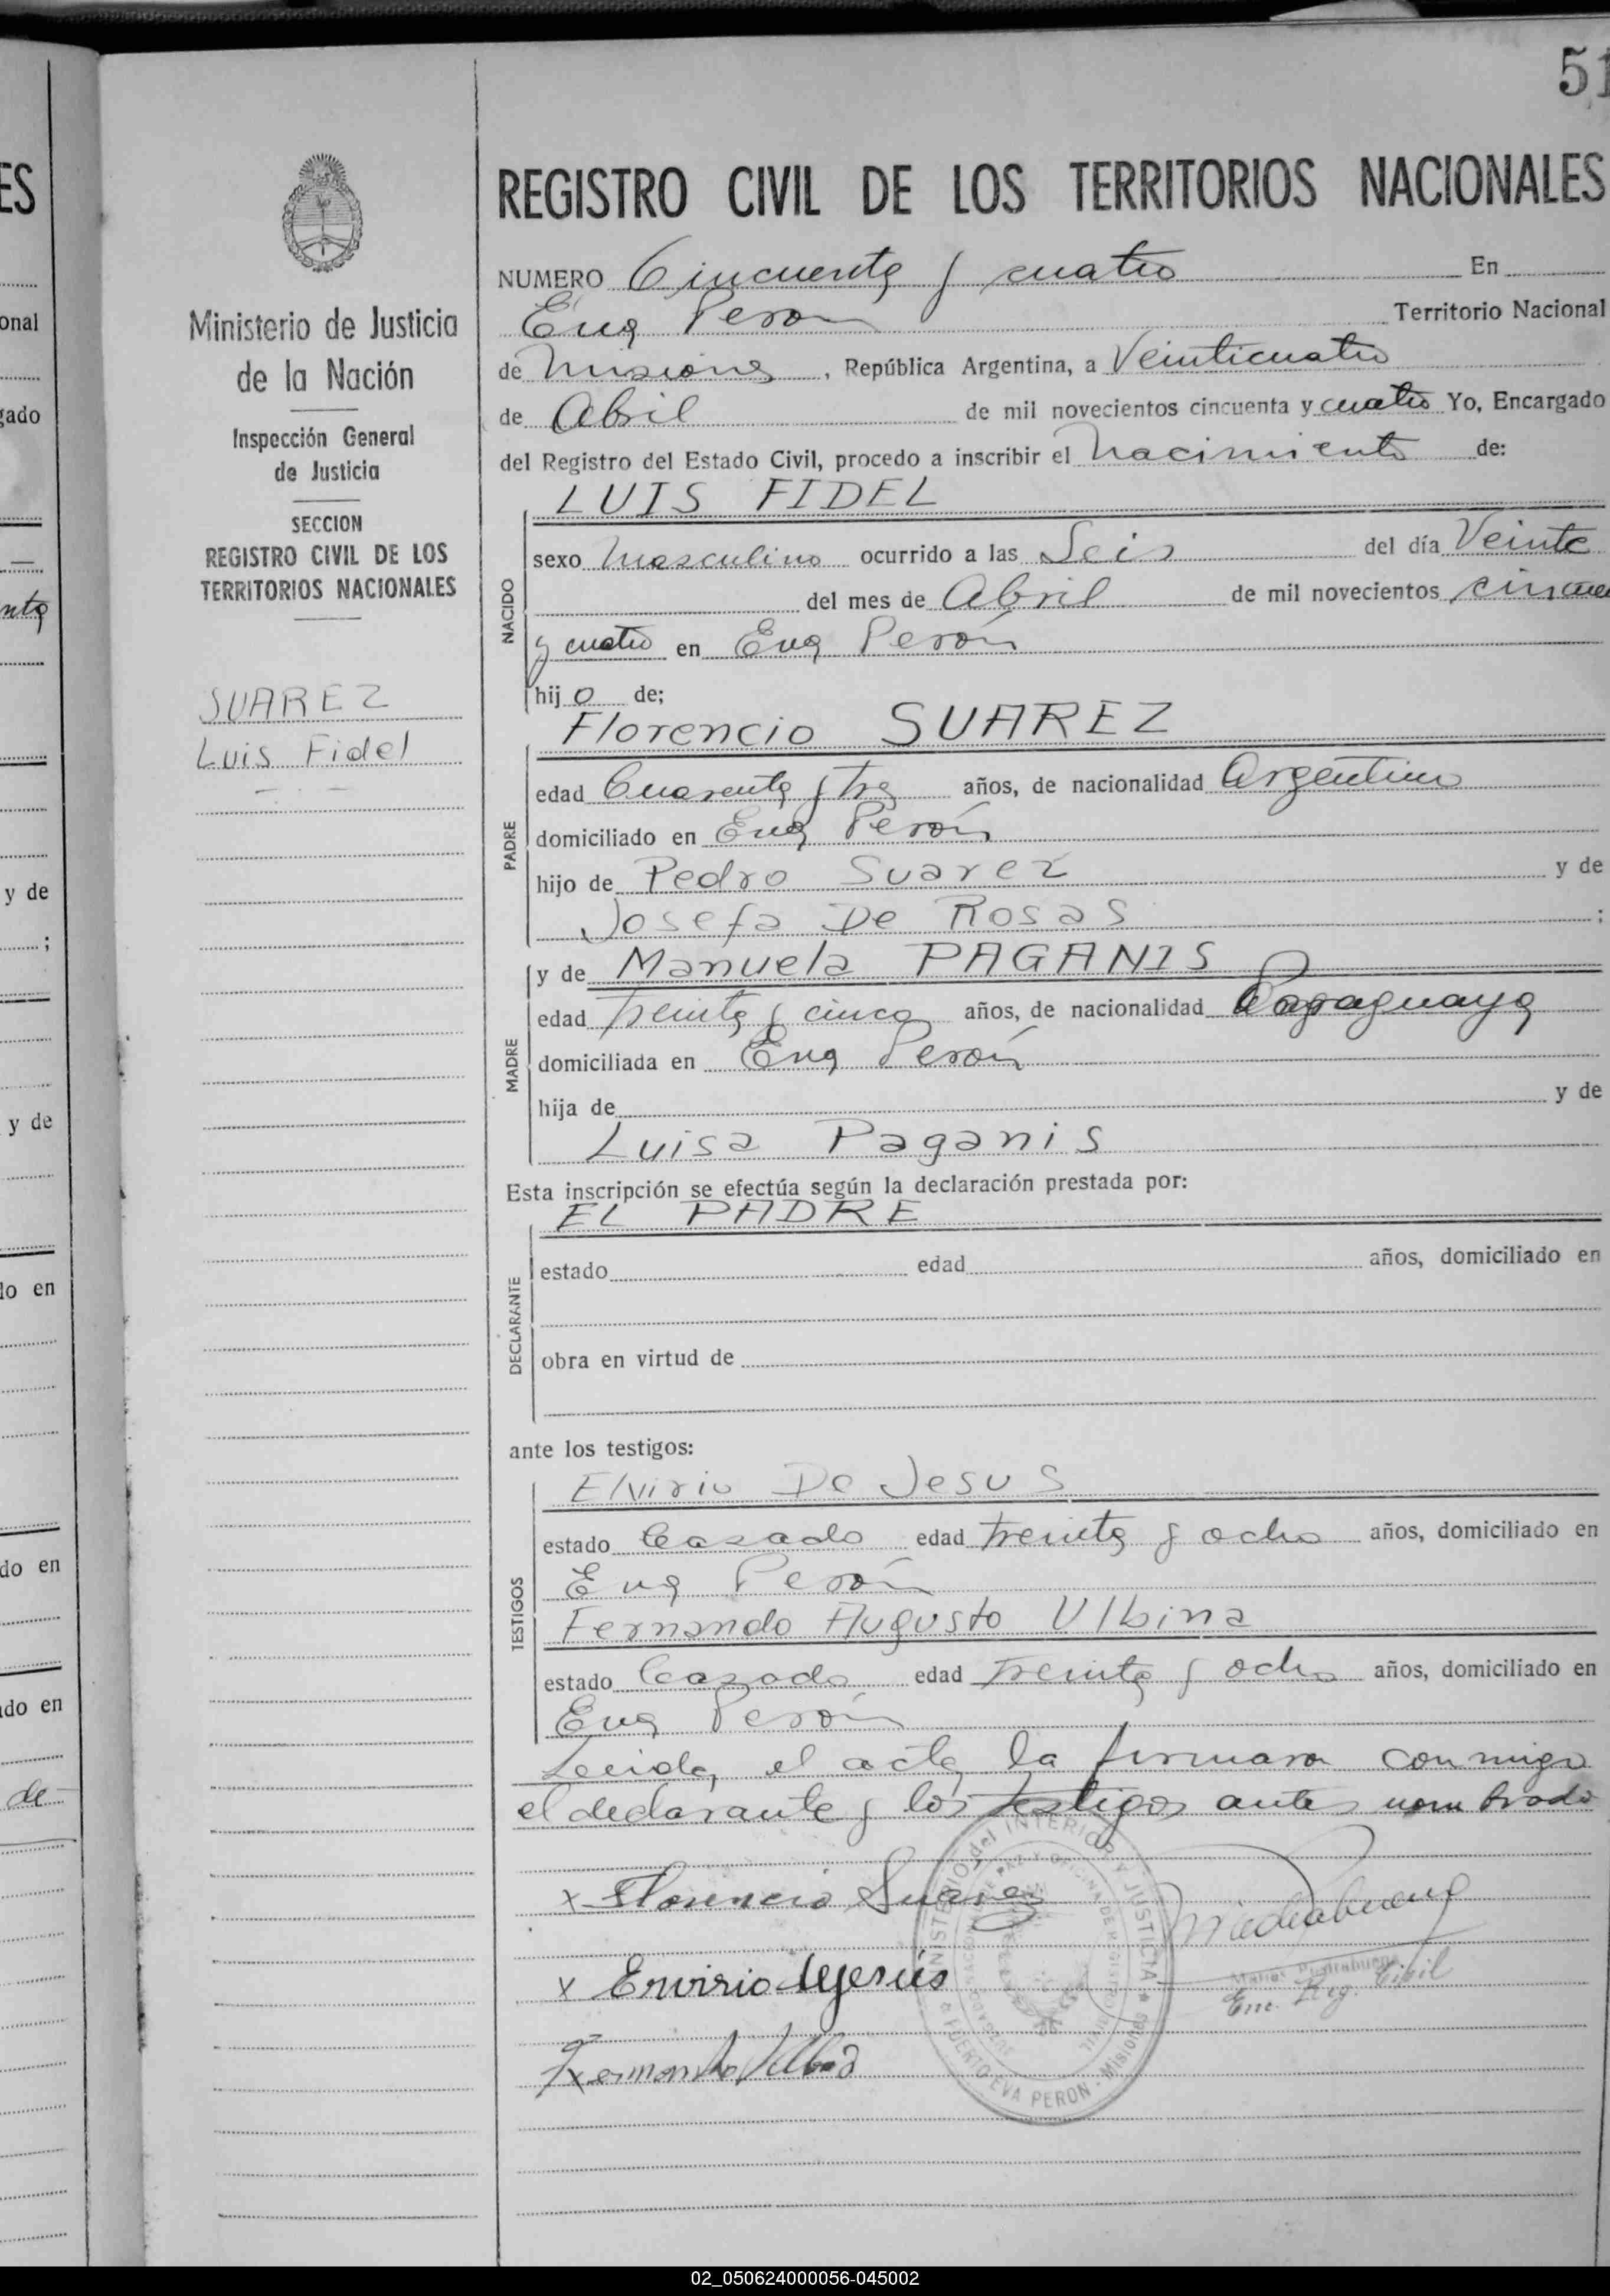 51
REGISTRO CIVIL DE LOS TERRITORIOS NACIONALES
Ministerio de Justicia
de la Nación
Inspección General
de Justicia
SECCION
REGISTRO CIVIL DE LOS
TERRITORIOS NACIONALES
SUAREZ
Luis Fidel
NUMERO Cincuenta y cuatro En
Eva Peron Territorio Nacional
de Misiones, República Argentina, a Veinticuatro
de Abril de mil novecientos cincuenta y cuatro Yo, Encargado
del Registro del Estado Civil, procedo a inscribir el Nacimiento de:
NACIDO
LUIS FIDEL
sexo Masculino ocurrido a las Seis del día Veinte
del mes de Abril de mil novecientos cincuen
y cuatro en Eva Perón
hijo de;
PADRE
Florencio SUAREZ
edad Cuarenta y tres años, de nacionalidad Argentino
domiciliado en Eva Perón
hijo de Pedro Suarez y de
Josefa De Rosas ;
MADRE
y de Manuela PAGANIS
edad Treinta y cinco años, de nacionalidad Paraguaya
domiciliada en Eva Perón
hija de y de
Luisa Paganis
Esta inscripción se efectúa según la declaración prestada por:
DECLARANTE
EL PADRE
estado edad años, domiciliado en
obra en virtud de
ante los testigos:
TESTIGOS
Elvirio De Jesus
estado Casado edad treinta y ocho años, domiciliado en
Eva Perón
Fernando Augusto Ulbina
estado Casado edad Treinta y ocho años, domiciliado en
Eva Perón
Leida el acta, la firmaron conmigo
el declarante y los testigos antes nombrado
x Florencio Suarez
x Envirio dejesús
Enc. Reg. Civil
MINISTERIO del INTERIOR Y JUSTICIA
PUERTO EVA PERON - MISIONES
02_050624000056-045002